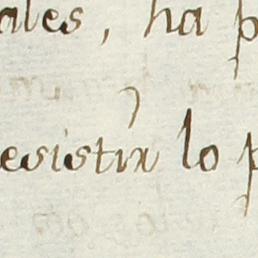 ales, ha p
esistir lo p